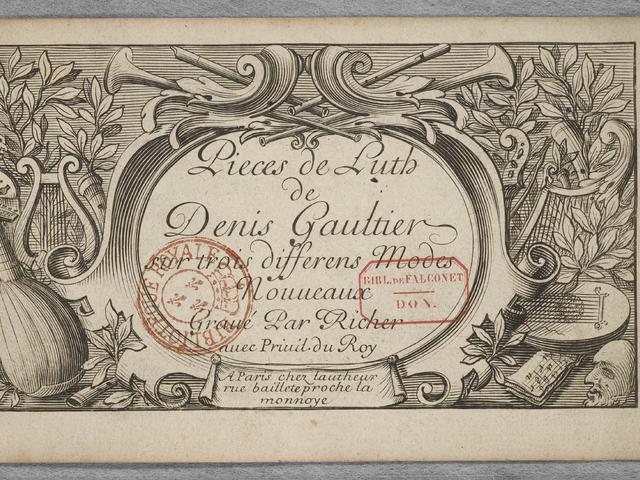 Pieces de Luth
de
Denis Gaultier
sur trois differens Modes
Nouueaux
Graué Par Richer
auec Priuil. du Roy
A Paris chez lautheur
rue baillete proche la
monnoye
BIBL. DE FALCONET
DON.